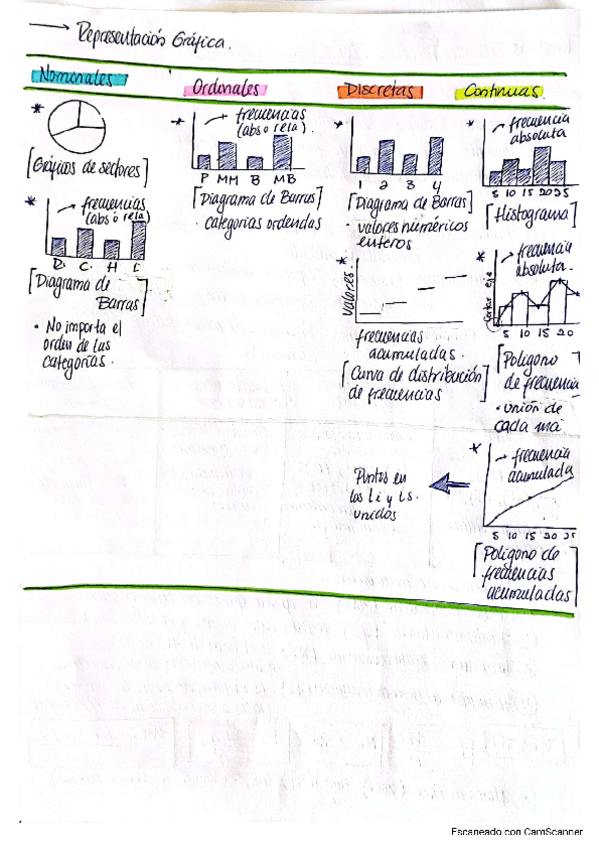 Representación Gráfica.
Nominales
Ordonales
Discretas
Continuas.
[Gráficos de sectores]
frecuencias
(abs o rela)
D. C. H E
[Diagrama de
Barras]
• No importa el
orden de las
categorías.
frecuencias
(abs o rela).
P MM B MB
[Diagrama de Barras]
• categorias ordendas
1 2 3 4
[Diagrama de Barras]
• valores numéricos
enteros
valores.
frecuencias
acumuladas.
[Curva de distribución
de frecuencias]
frecuencia
absoluta
5 10 15 20 25
[Histograma]
frecuencia
absoluta.
cortar eje
5 10 15 20
[Poligono
de frecuencia
• unión de
cada mai
Puntos en
los Li y Ls.
unidos
frecuencia
acumulada
5 10 15 20 25
[Poligono de
frecuencias
acumuladas]
Escaneado con CamScanner